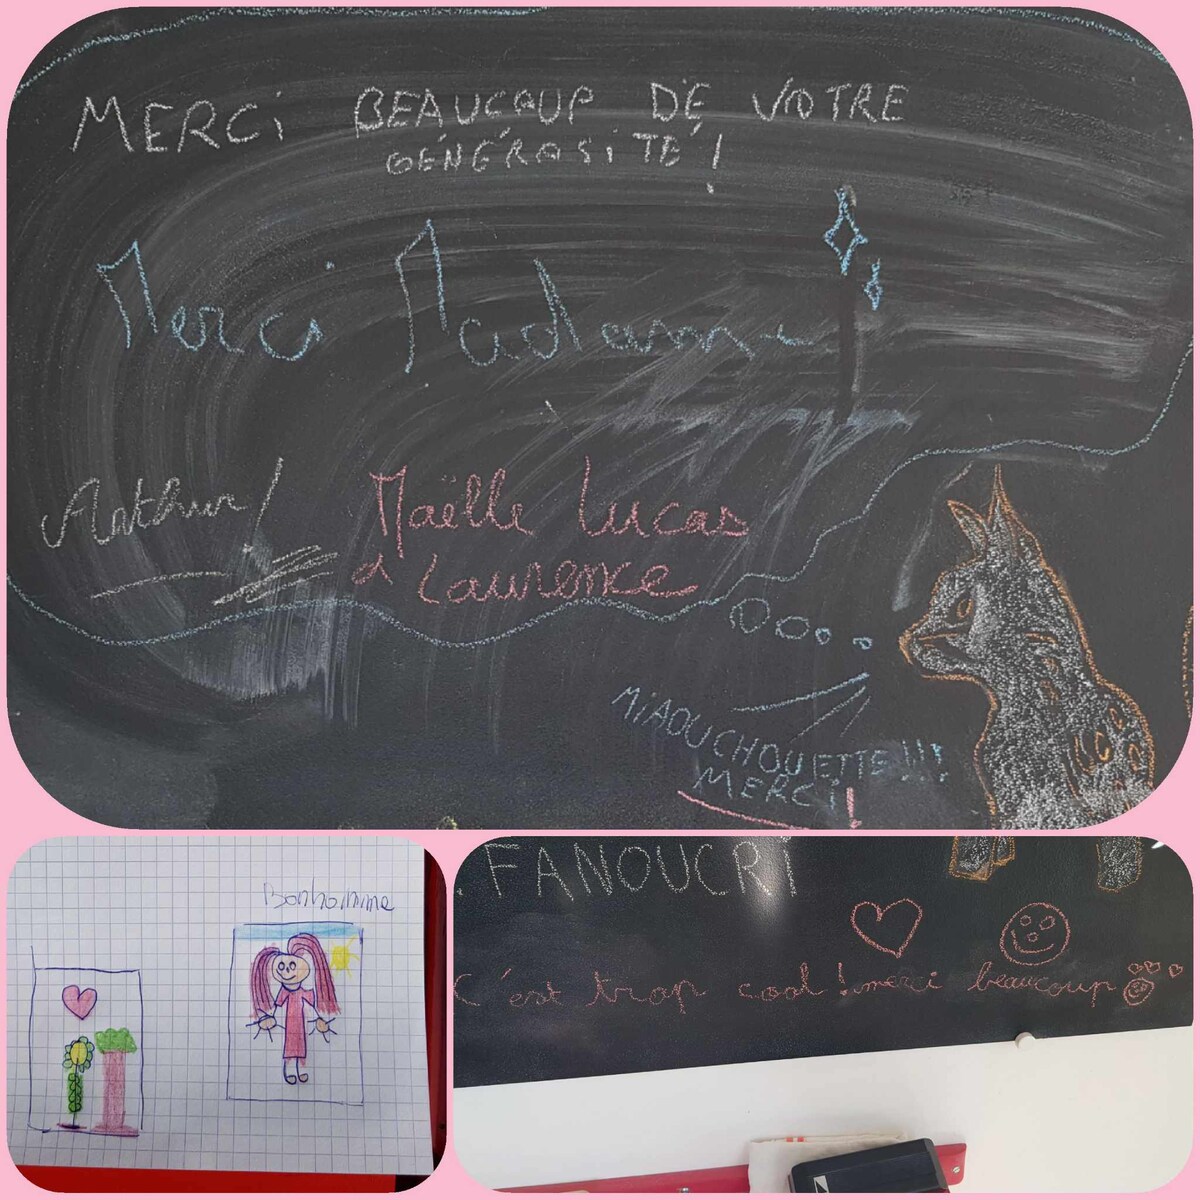 MERCi BEAUCOUP DE VOTRE
GÉNÉROSiTÉ !
Merci Madame
Arthur !
Maëlle Lucas
Laurence
MiAOU CHOUETTE !!!
MERCi !
Bonhomme
.FANOUCRi
C'est trop cool ! merci beaucoup